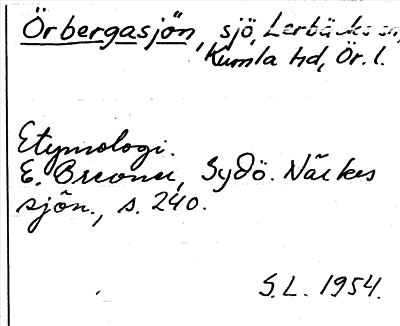 Örbergasjön, sjö, Lerbäcks sn,
Kumla hd, Ör. l.
Etymologi.
E. Brevner, Sydö. Närkes
sjön., s. 240.
S.L. 1954.